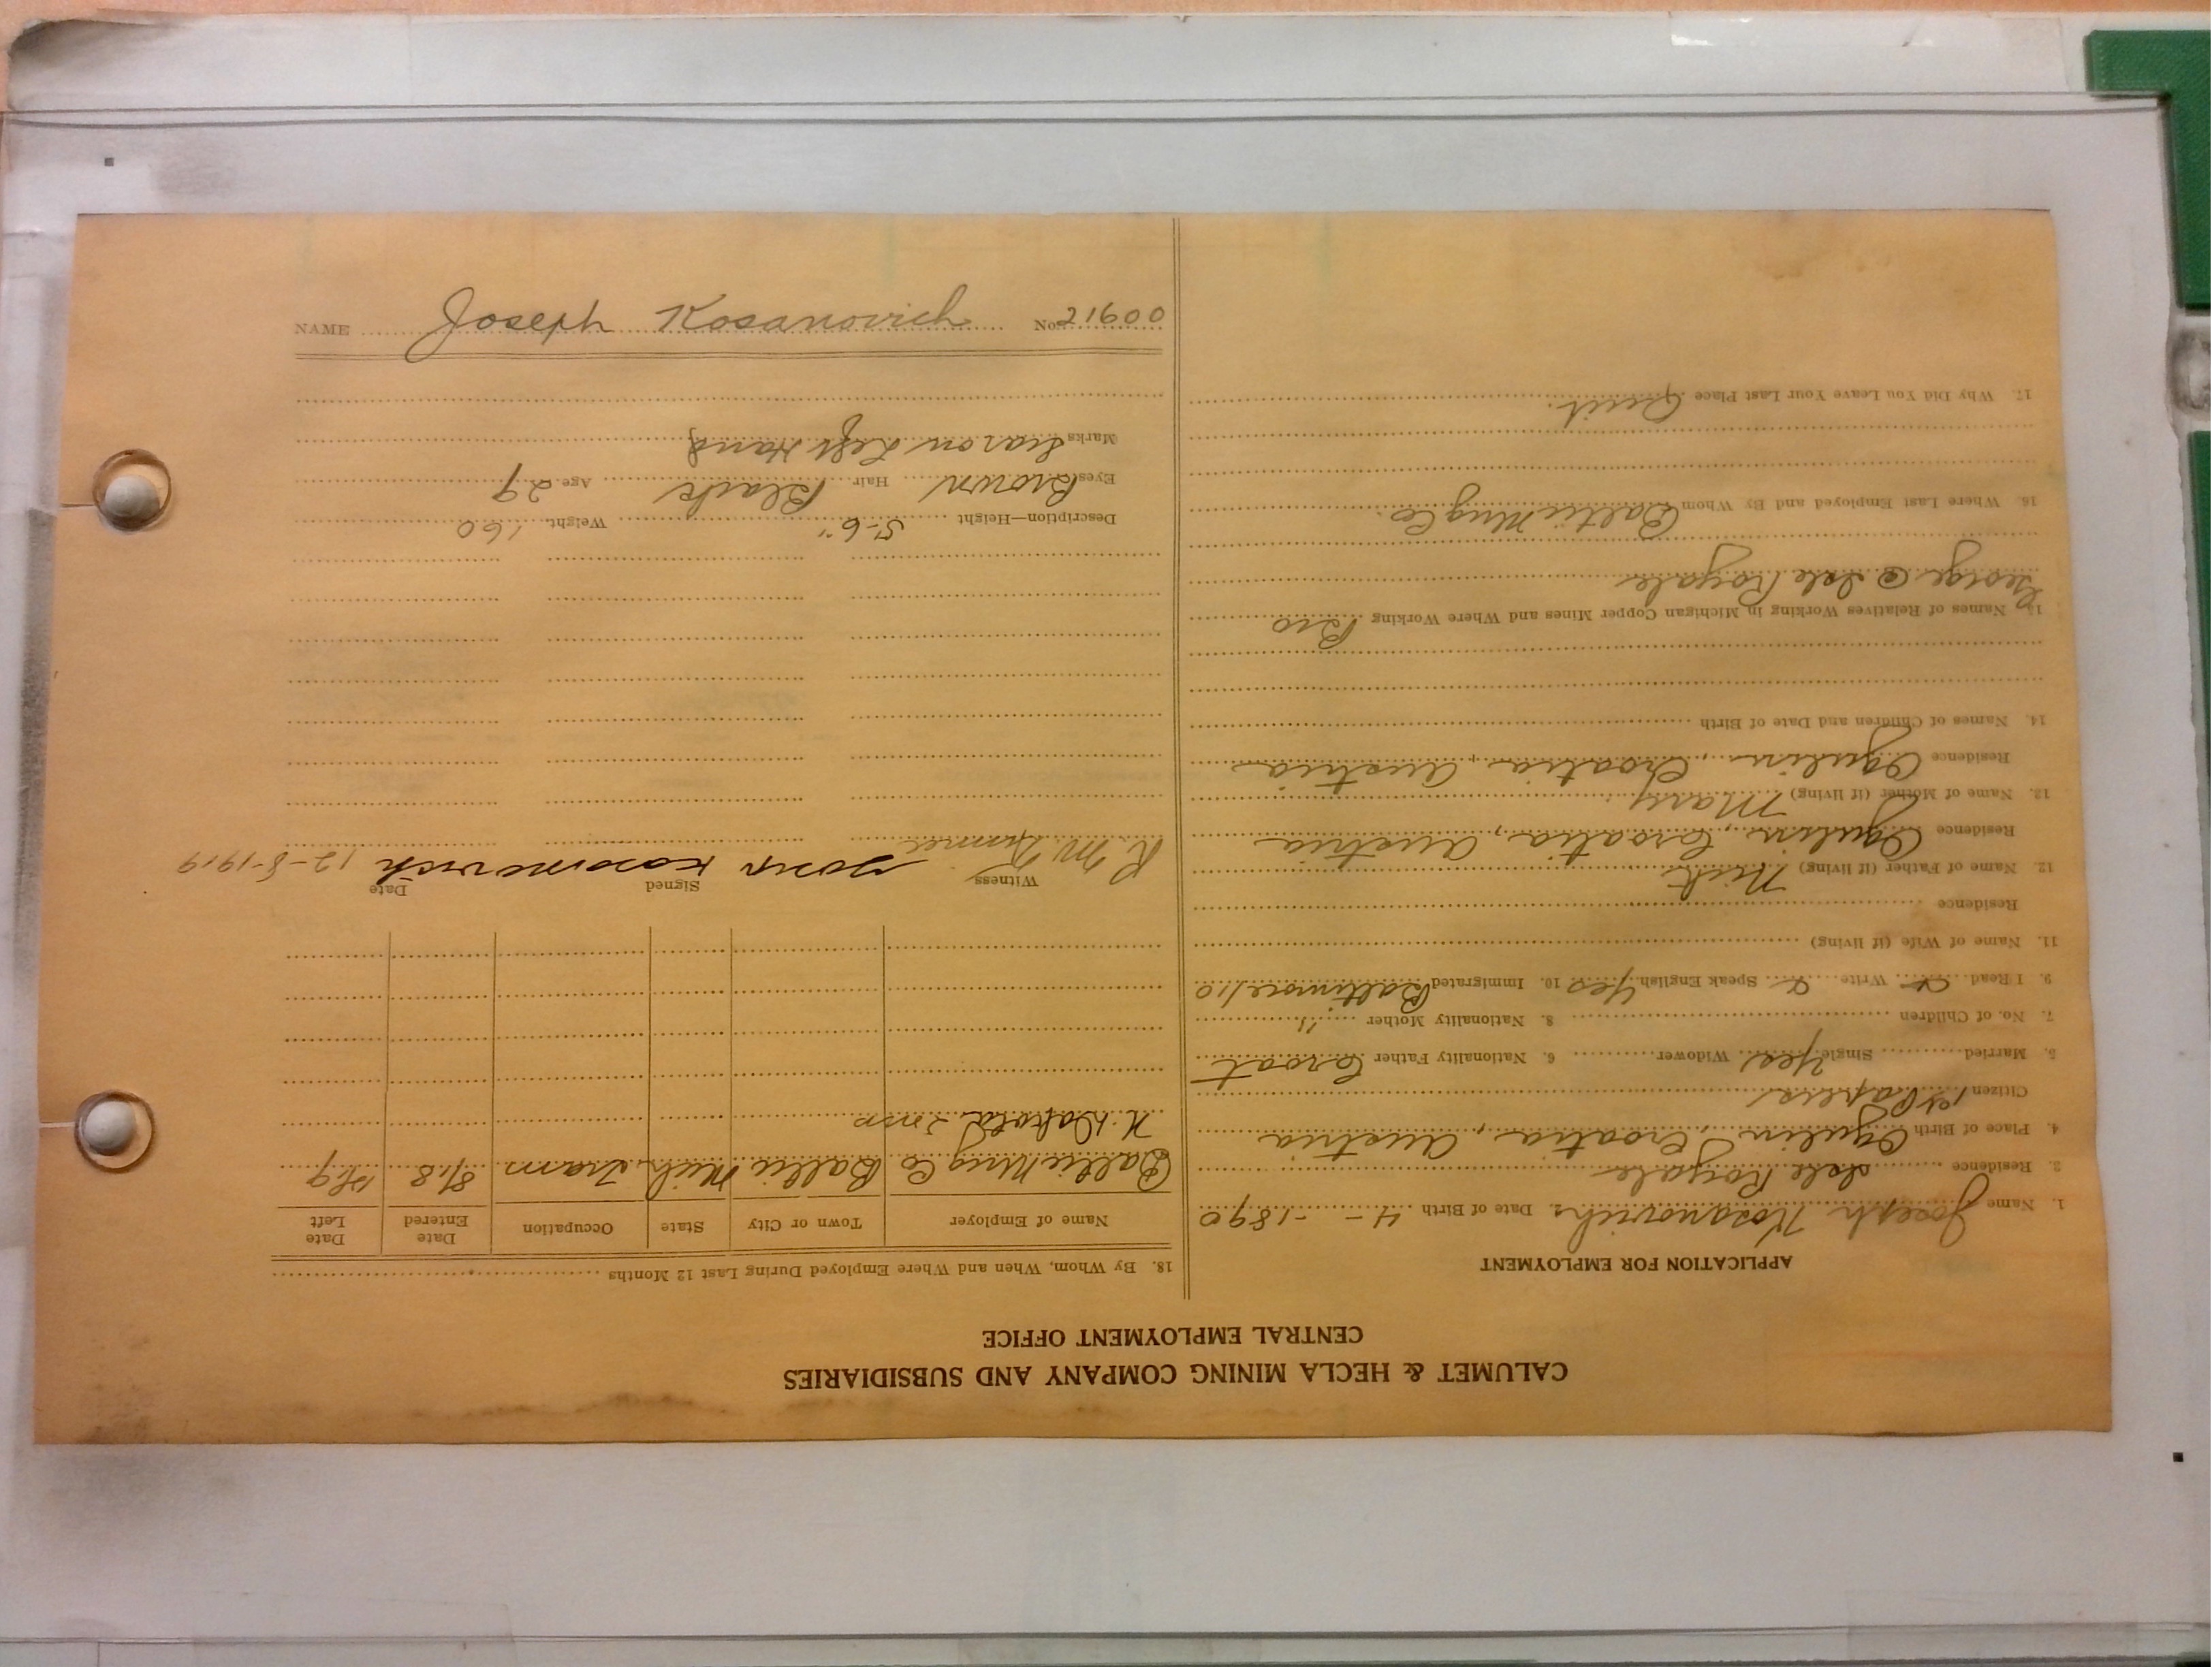 CALUMET & HECLA MINING COMPANY AND SUBSIDIARIES
CENTRAL EMPLOYMENT OFFICE
APPLICATION FOR EMPLOYMENT
1. Name Joseph Kosanovich 2. Date of Birth - 4 - 1890
3. Residence Isle Royale
4. Place of Birth Ogulin, Croatia, Austria
Citizen 1st Papers
5. Married Single Yes Widower 6. Nationality Father Croat
7. No. of Children 8. Nationality Mother "
9. I Read Write Speak English Yes 10. Immigrated Baltimore/10
11. Name of Wife (if living)
Residence
12. Name of Father (if living) Nick
Residence Ogulin, Croatia, Austria
13. Name of Mother (if living) Mary
Residence Ogulin, Croatia, Austria
14. Names of Children and Date of Birth
15. Names of Relatives Working in Michigan Copper Mines and Where Working Bro
George @ Isle Royale
16. Where Last Employed and By Whom Baltic Mng Co.
17. Why Did You Leave Your Last Place Quit.
18. By Whom, When and Where Employed During Last 12 Months
Name of Employer Town or City State Occupation Date Entered Date Left
Baltic Mng Co Baltic Mich. Tram 8/18
N. Dakota
Witness Signed Date
R. M. Josip Kosanovich 12-8-1919
Description—Height 5'-6" Weight 160
Eyes Brown Hair Black Age 29
Marks Scar on Left Hand
NAME Joseph Kosanovich No. 21600